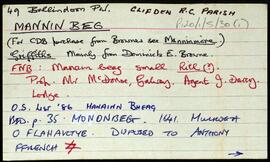 49 Ballindoon Ph. CLIFDEN R.C. PARISH
MANNIN BEG P120/1/5/30(1)
(For CDB purchase from Brownes see Manninmore)
Griffiths Mainly from Dominick E. Browne
FNB: Mannin beag small
Prop. Mr McDonor, Galway. Agent J. Darcy.
Lodge.
O.S. List '86 MANAINN BHEAG
BSD. p. 35 MONONBEGT. 1641.
O FLAHAVTYE. DISPOSED TO ANTHONY
FFRENCH